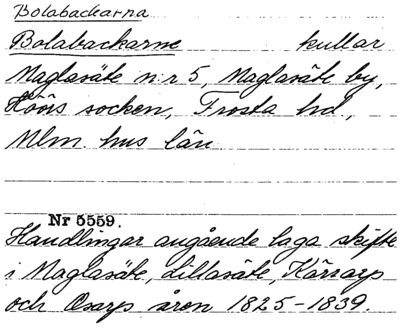 Bolabackarna
Bolabackarne kullar
Maglasäte n:r 5, Maglasäte by,
Höörs socken, Frosta hd.,
Mlm. hus län
Nr 5559.
Handlingar angående laga skifte
i Maglasäte, Lillasäte, Kärrarp
och Osarp åren 1825-1839.